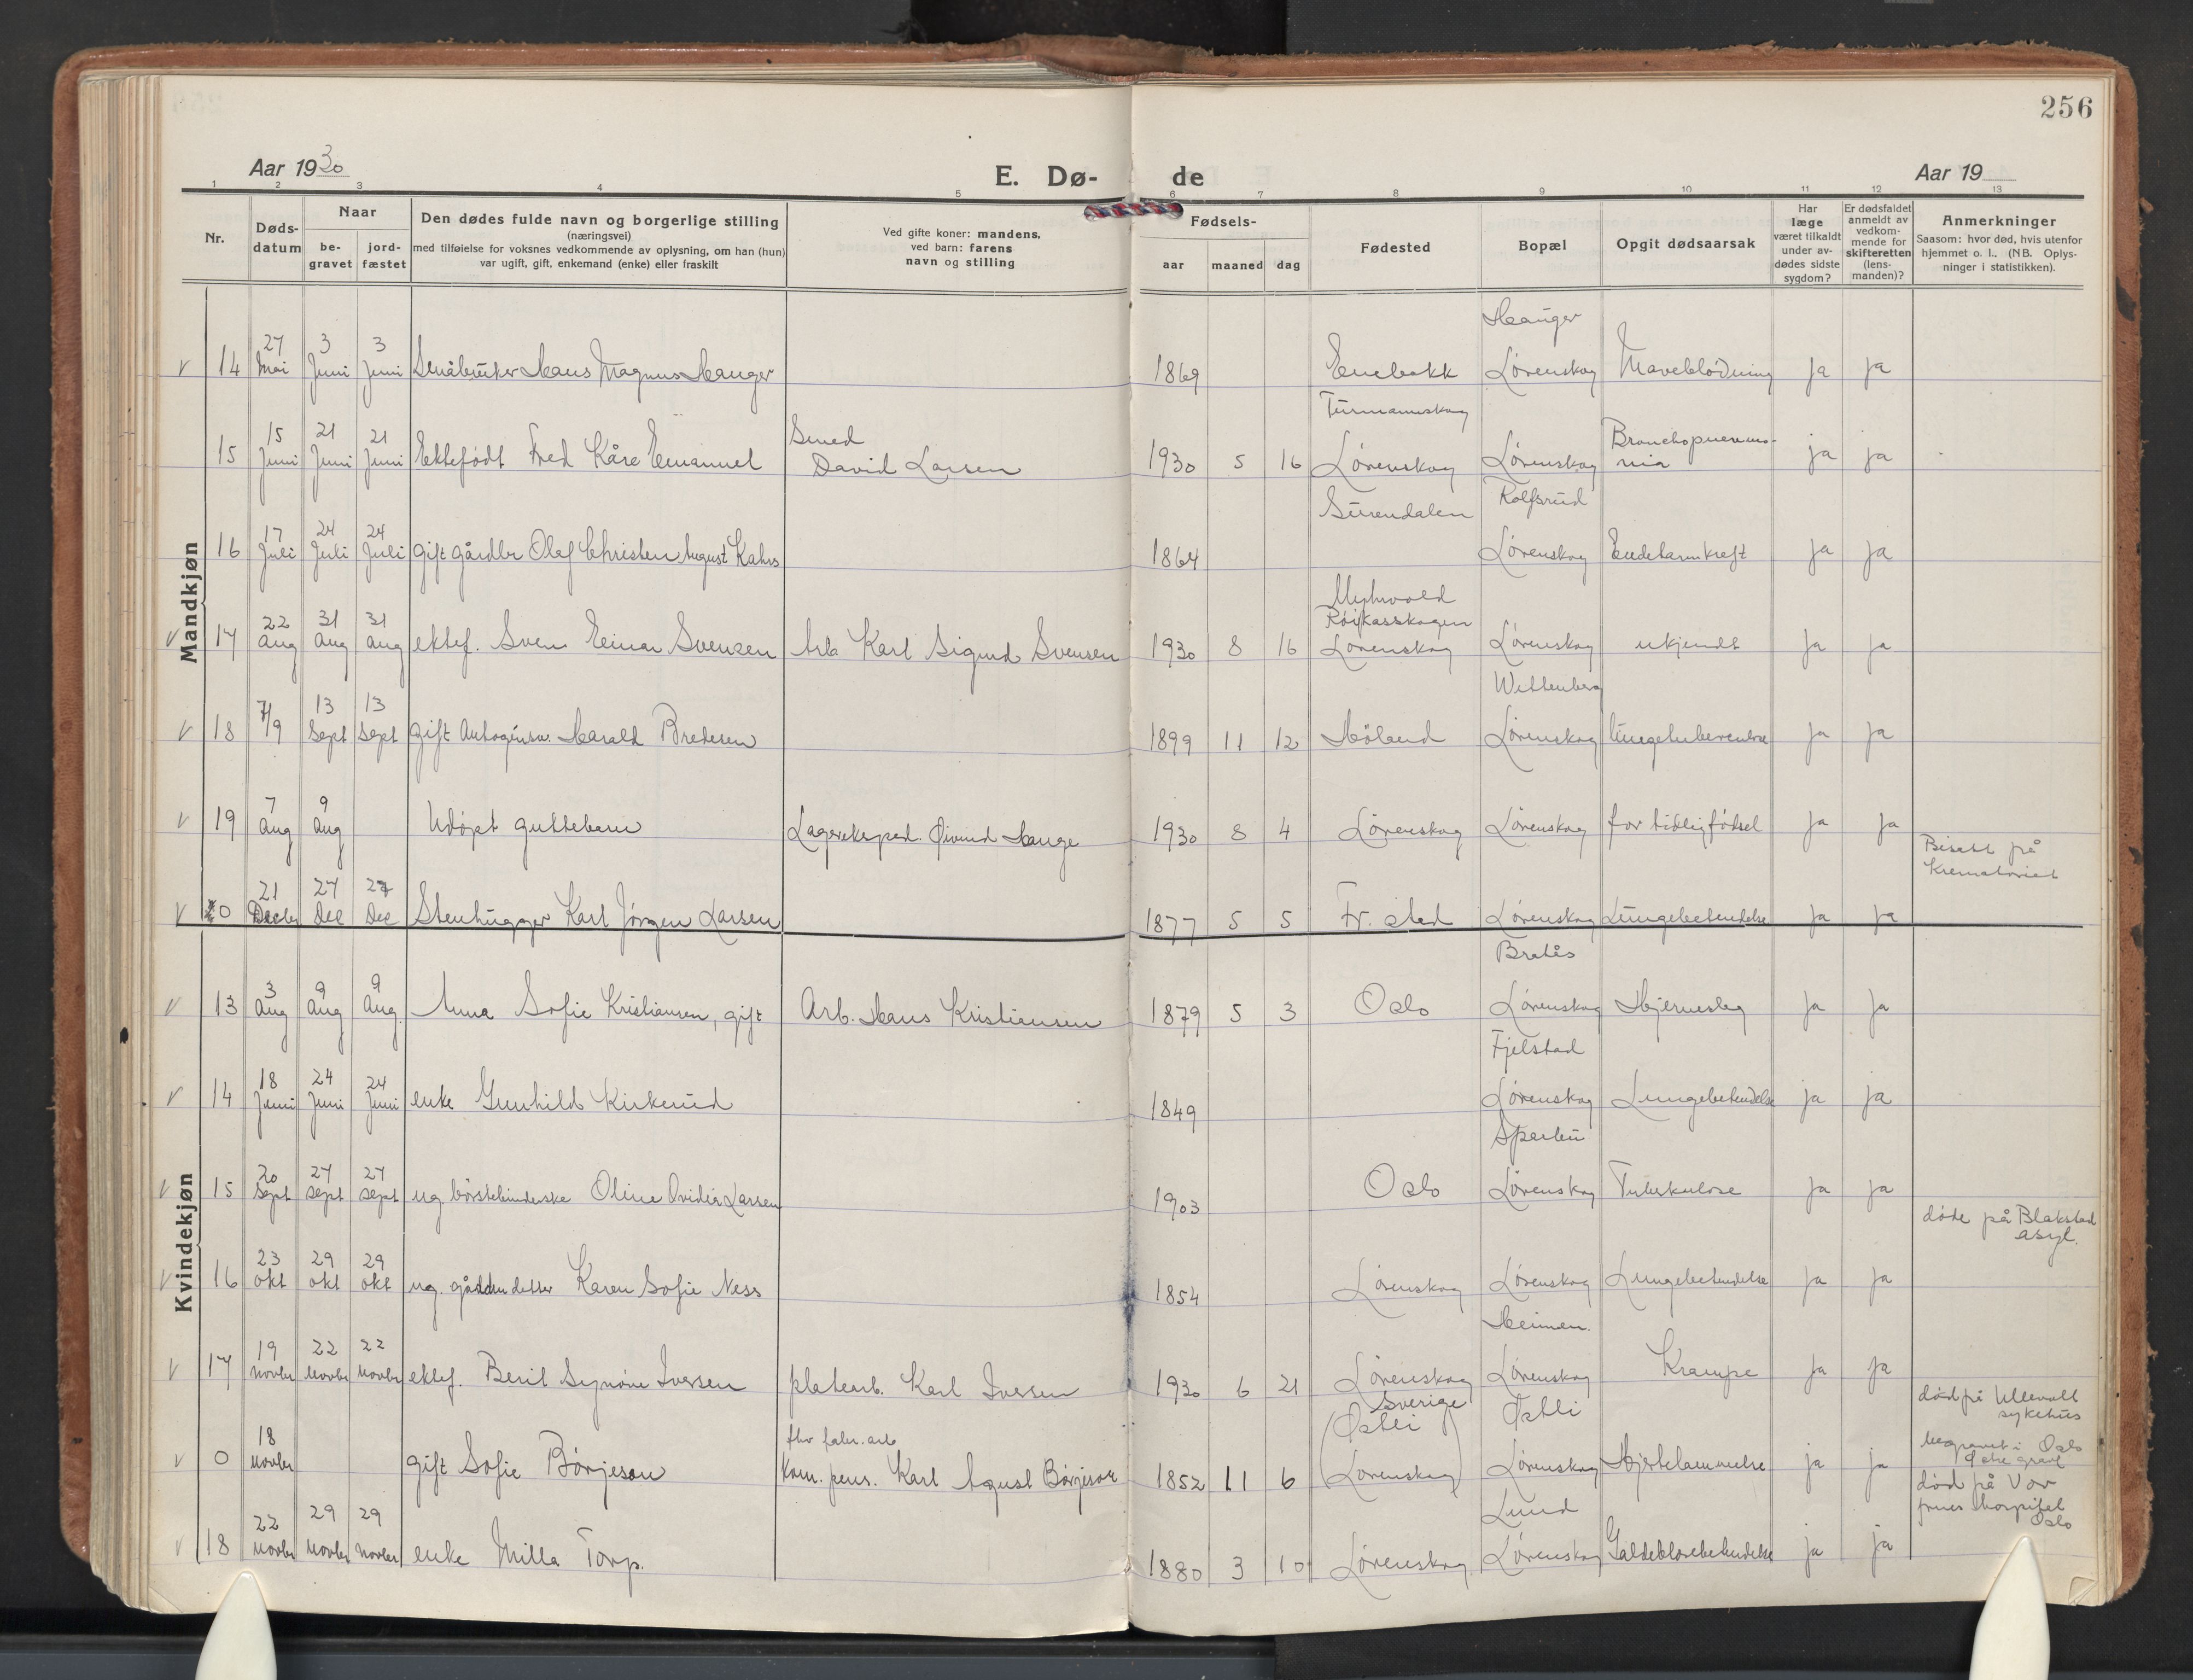 256
Aar 1930
E. Dø-
de
Aar 19
1 2 3 4 5 6 7 8 9 10 11 12 13
Nr.
Døds-
datum
Naar
be-
gravet
jord-
fæstet
Den dødes fulde navn og borgerlige stilling
(næringsvei)
med tilføielse for voksnes vedkommende av oplysning, om han (hun)
var ugift, gift, enkemand (enke) eller fraskilt
Ved gifte koner: mandens,
ved barn: farens
navn og stilling
Fødsels-
aar maaned dag
Fødested
Bopæl
Opgit dødsaarsak
Har
læge
været tilkaldt
under av-
dødes sidste
sygdom?
Er dødsfaldet
anmeldt av
vedkom-
mende for
skifteretten
(lens-
manden)?
Anmerkninger
Saasom: hvor død, hvis utenfor
hjemmet o. l.. (NB. Oplys-
ninger i statistikken).
Mandkjøn
Hauger
27 3 3
v 14 Mai Juni Juni Småbruker Hans Magnus Hauger 1869 Enebakk Lørenskog Maveblødning ja ja
Turmannskog
15 21 21 Smed Bronchopneumo-
15 Juni Juni Juni Ektefødt Fred Kåre Emanuel David Larsen 1930 5 16 Lørenskog Lørenskog nia ja ja
Surendalen Rolfsrud
17 24 24
16 Juli Juli Juli gift gårdbr Olof Christen August Kahrs 1864 Lørenskog Endetarmkreft ja ja
Myhrvold
22 31 31 Røikasskogen
v 17 Aug Aug Aug ektef. Sven Einar Svensen Arb Karl Sigurd Svensen 1930 8 16 Lørenskog Lørenskog ukjendt ja ja
Wittenberg
7/9 13 13
v 18 Sept Sept gift Harald Bredesen 1899 11 12 Høland Lørenskog Lungetuberculose ja ja
7 9
v 19 Aug Aug Udøpt guttebarn Lagereksped. Øivind Hauge 1930 8 4 Lørenskog Lørenskog for tidlig fødsel ja ja
Bisatt på
Krematoriet
21 27 27
v 20 Decbr Dec Dec Stenhugger Karl Jørgen Larsen 1877 5 5 Fr. stad Lørenskog Lungebetendelse ja ja
Kvindekjøn
Bratås
3 9 9
v 13 Aug Aug Aug. Anna Sofie Kristiansen, gift Arb. Hans Kristiansen 1879 5 3 Oslo Lørenskog Hjerneslag ja ja
Fjelstad
18 24 24
v 14 Juni Juni Juni enke Gunhild Kirkerud 1849 Lørenskog Lungebetendelse ja ja
20 27 27
v 15 Sept Sept Sept ug børstebinderske Oline Ovidia Larsen 1903 Oslo Lørenskog Tuberkulose ja ja
døde på Blakstad
asyl.
23 29 29
v 16 Okt Okt Okt ug. gårdbr datter Karen Sofie Ness 1854 Lørenskog Lørenskog Lungebetendelse ja ja
Heimen.
19 22 22
v 17 Novbr Novbr Novbr ektef. Berit Synøve Iversen platearb. Karl Iversen 1930 6 21 Lørenskog Lørenskog Krampe ja ja
død på Ullevåll
sykehus
Sverige
(Østli Østli
18 fhv fabr. arb
v 0 Novbr gift Sofie Børjeson Kom. pens. Karl Agust Børjeson 1852 11 6 Lørenskog) Lørenskog Hjertelammelse ja ja
begravet i Oslo
død på Vor
frues Hospital
Oslo
Lund
22 29 29
v 18 Novbr Novbr Novbr enke Milla Torp. 1880 3 10 Lørenskog Lørenskog Galdeblærebetendelse ja ja